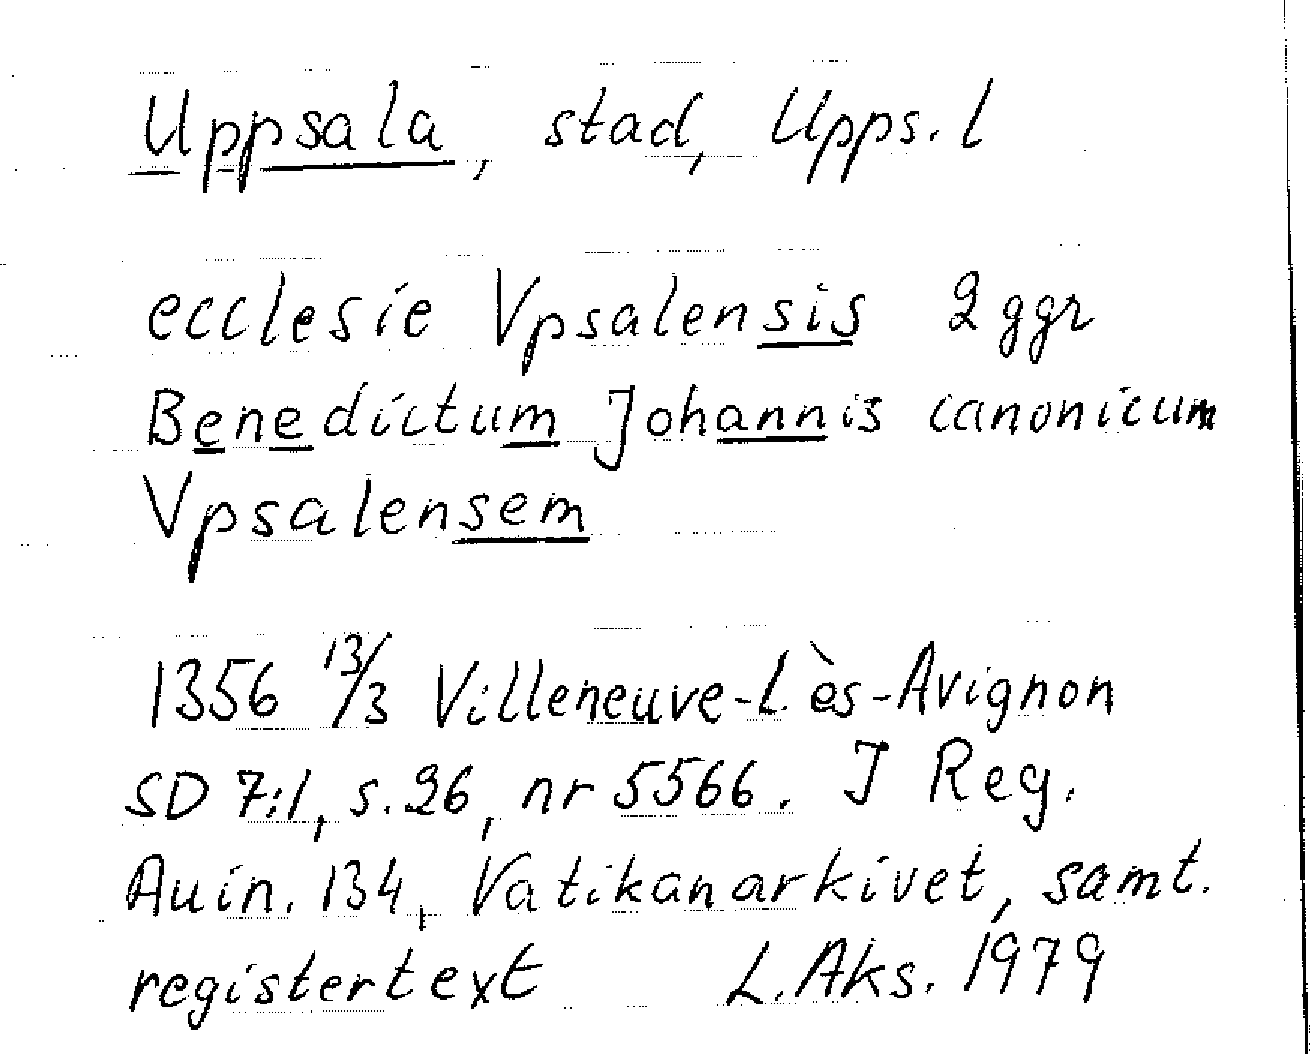 Uppsala, stad, Upps. l
ecclesie Vpsalensis 2 ggr
Benedictum Johannis canonicum
Vpsalensem
1356 13/3 Villeneuve-Lès-Avignon
SD 7:1, s. 26, nr 5566. I Reg.
Auin. 134, Vatikanarkivet, samt.
registertext L. Aks. 1979